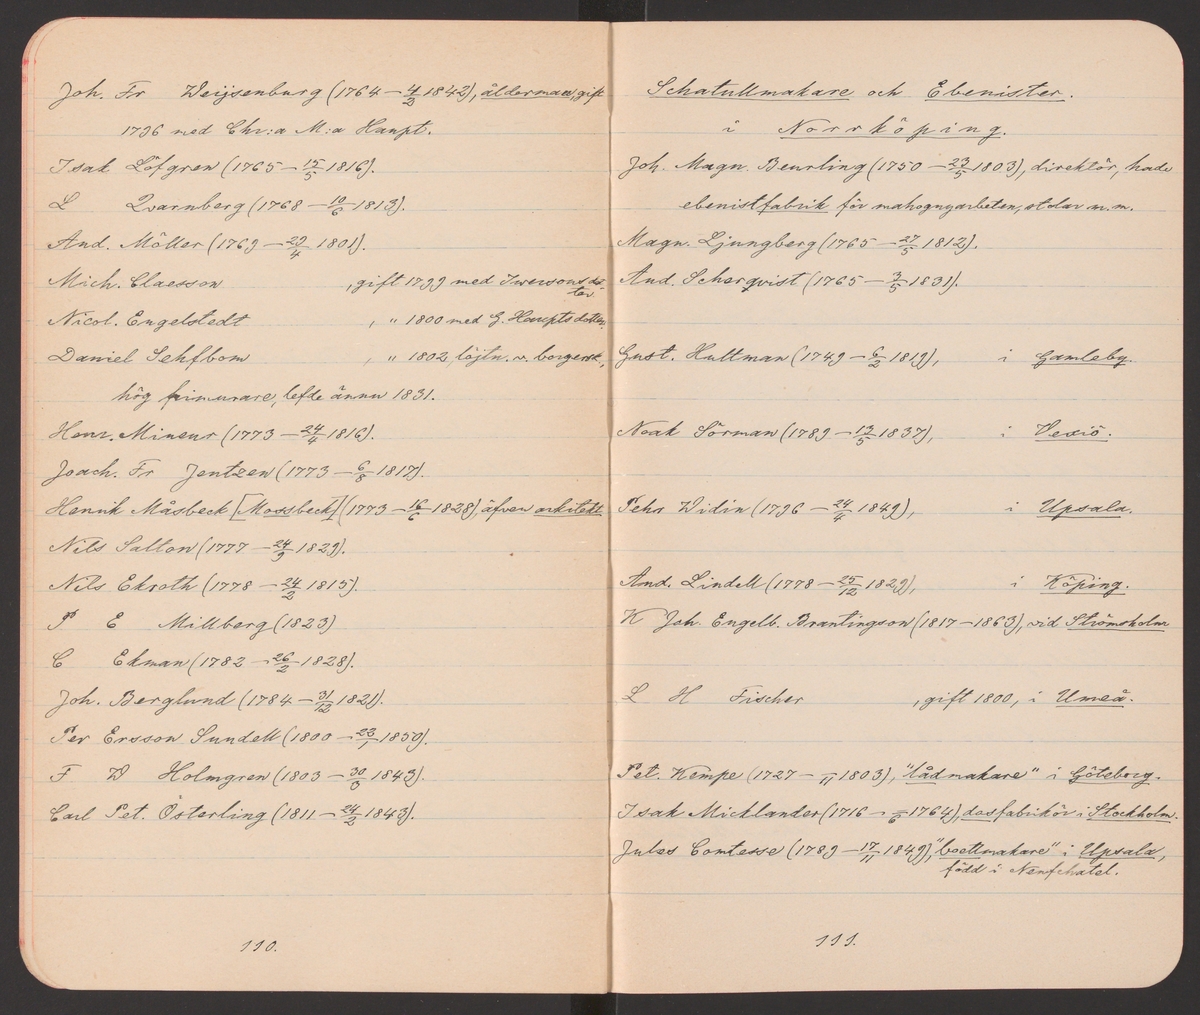 Joh. Fr Weijsenburg (1764 – 4/2 1842), ålderman, gift
1796 med Chr:a M:a Haupt.
Isak Löfgren (1765 – 15/5 1816).
L Qvarnberg (1768 – 10/6 1813).
And. Möller (1769 – 29/4 1801).
Mich. Claesson , gift 1799 med Iwersons dotter.
Nicol. Engelstedt , " 1800 med G. Haupts dotter.
Daniel Sehfbom , " 1802, löjtn. v. borgersk.,
hög frimurare, lefde ännu 1831.
Henr. Mineur (1773 – 24/4 1816).
Joach. Fr Jentzen (1773 – 6/8 1817).
Henrik Måsbeck [Mossbeck] (1773 – 16/6 1828), äfven arkitekt
Nils Salton (1777 – 24/9 1829).
Nils Ekroth (1778 – 24/2 1815).
P E Millberg (1823)
C Ekman (1782 – 26/2 1828).
Joh. Berglund (1784 – 31/12 1821).
Per Ersson Sundell (1800 – 23/1 1850).
F W Holmgren (1803 – 30/8 1843).
Carl Pet. Österling (1811 – 24/2 1843).
110.
Schatullmakare och Ebenister.
i Norrköping.
Joh. Magn. Beurling (1750 – 23/5 1803), direktör, hade
ebenistfabrik för mahognyarbeten, stolar m.m.
Magn. Ljungberg (1765 – 27/5 1812).
And. Scherqvist (1765 – 3/5 1831).
Gust. Hultman (1749 – 6/2 1819), i Gamleby.
Noak Sörman (1789 – 13/5 1837), i Vexiö.
Pehr Widin (1796 – 24/4 1849), i Upsala.
And. Lindell (1778 – 25/12 1829), i Köping.
K Joh. Engelb. Brantingson (1817 – 1863), vid Strömsholm
L H Fischer , gift 1800, i Umeå.
Pet. Kempe (1727 – /11 1803), "lådmakare" i Göteborg.
Isak Micklander (1716 – /6 1764), dosfabrikör i Stockholm.
Jules Comtesse (1789 – 17/11 1849), "boettmakare" i Upsala,
född i Neufchatel.
111.